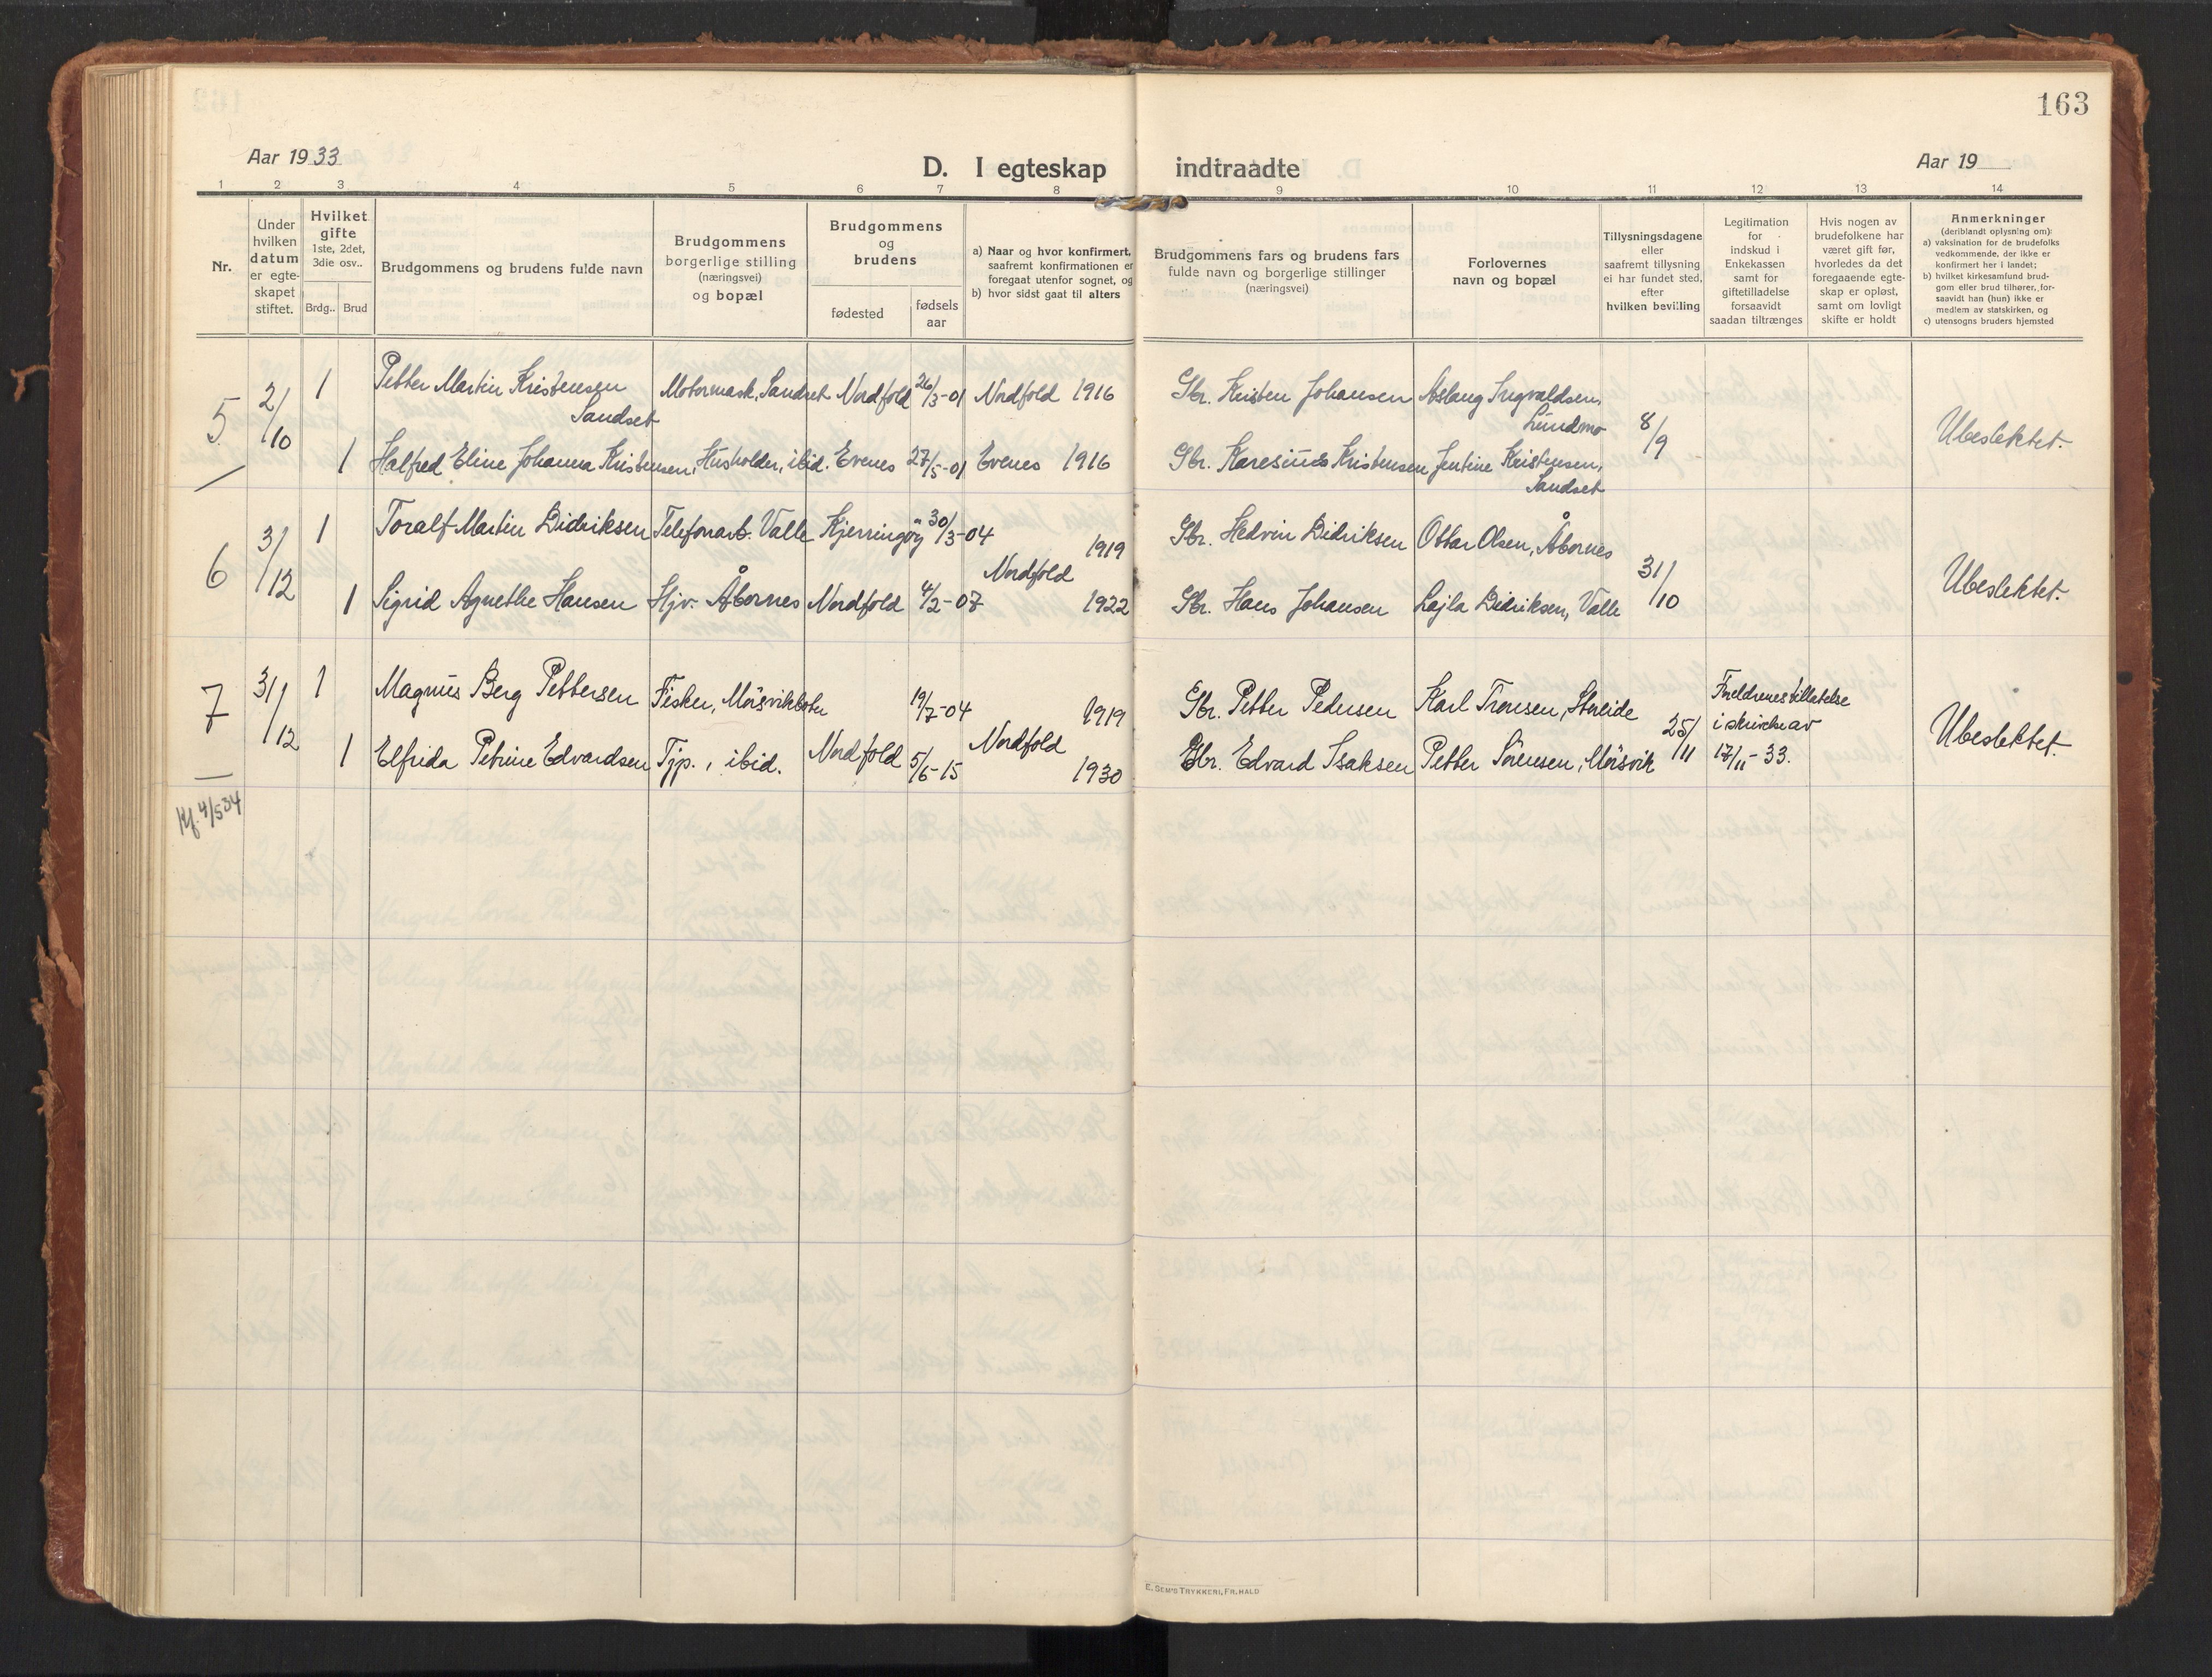 163
Aar 1933
D. I egteskap indtraadte
Aar 19
1 2 3 4 5 6 7 8 9 10 11 12 13 14
Nr.
Under hvilken datum er egte-skapet stiftet.
Hvilket gifte
1ste, 2det, 3die osv..
Brdg.. Brud
Brudgommens og brudens fulde navn
Brudgommens
borgerlige stilling
(næringsvei)
og bopæl
Brudgommens
og
brudens
fødested
fødsels
aar
a) Naar og hvor konfirmert,
saafremt konfirmationen er
foregaat utenfor sognet, og
b) hvor sidst gaat til alters
Brudgommens fars og brudens fars
fulde navn og borgerlige stillinger
(næringsvei)
Forlovernes
navn og bopæl
Tillysningsdagene
eller
saafremt tillysning
ei har fundet sted,
efter
hvilken bevilling
Legitimation
for
indskud i
Enkekassen
samt for
giftetilladelse
forsaavidt
saadan tiltrænges
Hvis nogen av
brudefolkene har
været gift før,
hvorledes da det
foregaaende egte-
skap er opløst,
samt om lovligt
skifte er holdt
Anmerkninger
(deriblandt oplysning om):
a) vaksination for de brudefolks
vedkommende, der ikke er
konfirmert her i landet;
b) hvilket kirkesamfund brud-
gom eller brud tilhører, for-
saavidt han (hun) ikke er
medlem av statskirken, og
c) utensogns bruders hjemsted
5 2/10 1 Petter Martin Kristensen Sandset Motormask, Sandset Nordfold 26/3-01 Nordfold 1916 Gbr. Kristen Johansen Aslaug Ingvaldsen, Lundmo 8/9 Ubeslektet.
1 Halfred Eline Johanna Kristensen, Husholder, ibid. Evenes 27/5-01 Evenes 1916 Gbr. Karesius Kristensen Jentine Kristensen, Sandset
6 3/12 1 Toralf Martin Didriksen Telefonarb. Valle Kjerringøy 30/3-04 Nordfold 1919 Gbr. Hedvin Didriksen Ottar Olsen, Åbornes 31/10 Ubeslektet.
1 Sigrid Agnethe Hansen Hjv. Åbornes Nordfold 4/2-07 1922 Gbr. Hans Johansen Lajla Didriksen, Valle
7 31/12 1 Magnus Berg Pettersen Fisker, Mørsvikbotn Nordfold 19/7-04 Nordfold 1919 Gbr. Petter Pedersen Karl Tronsen, 25/11 Foreldrenes tillatelse i skrivelse av 17/11-33. Ubeslektet.
1 Elfrida Petrine Edvardsen Tjp., ibid. 5/6-15 1930 Gbr. Edvard Isaksen Petter Sørensen, Mørsvik
Kf. 4/5 34
E. SEM'S TRYKKERI, FR.HALD